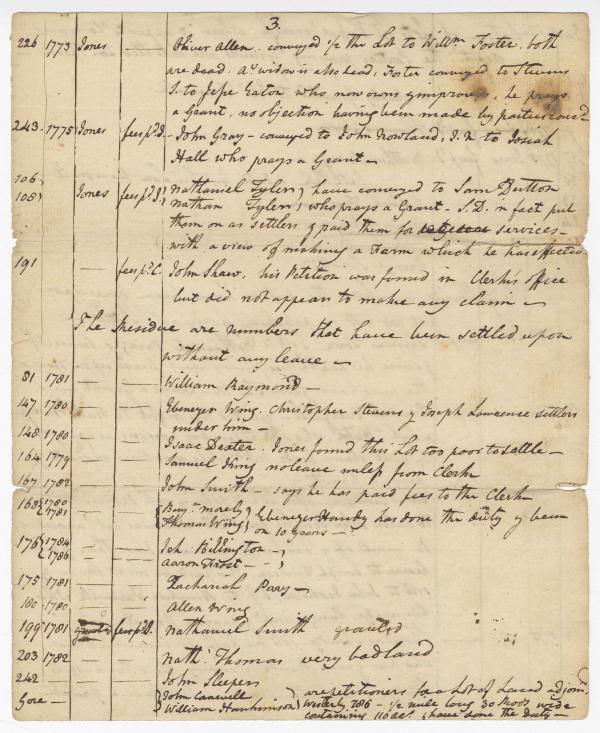 3.
226 1773 Jones — Oliver Allen. conveyed 1/2 the Lot to Willm Foster. both
are dead. A's widow is also dead, Foster conveyed to Stevens
S. to Jesse Eaton who now owns & improves, he prays
a Grant, no objection having been made by parties
243. 1775 Jones fees pd. J. — John Gray — conveyed to John Nowland, J. N. to Josiah
Hall who prays a Grant —
106 Nathaniel Tylers } have conveyed to Sam Dutton
108 } Jones fees pd. J. Nathan Tylers } who prays a Grant — S. D. in fact put
them on as settlers & paid them for services —
with a view of making a Farm which he has effected
191 — fees pd. C. John Shaw, his Petition was found in Clerk's office
but did not appear to make any claim —
The Residue are numbers that have been settled upon
without any leave —
81 1781 — — William Raymond —
147 1780 — — Ebenezer Wing. Christopher Stevens & Joseph Lawrence settlers
under him —
148 1780 — — Isaac Dexter. Jones found this Lot too poor to settle —
164 1779 — — Samuel King no leave unless from Clerk
167 1782 — — John Smith — says he has paid fees to the Clerk
168 { 1780 — — Benj. morely }
1781 — — Thomas Wing } Ebenezer Handy has done the duty & been
on 10 years —
176 { 1784 — — Ich. Billington — }
1786 — — Aaron Frost — }
175 1781 — — Zachariah Pary —
180 1780 — Allen Wing
199 1781 fees pd. J. Nathaniel Smith granted
203 1782 — — Nathl. Thomas very bad land
242 — — — John Sleepers
Gore — — — { John } are petitioners for a Lot of Land adjoing
William Hankinson } Westerly 786 — 1/2 mile long 30 Rods wide
containing 110 acs. & have done the Duty —